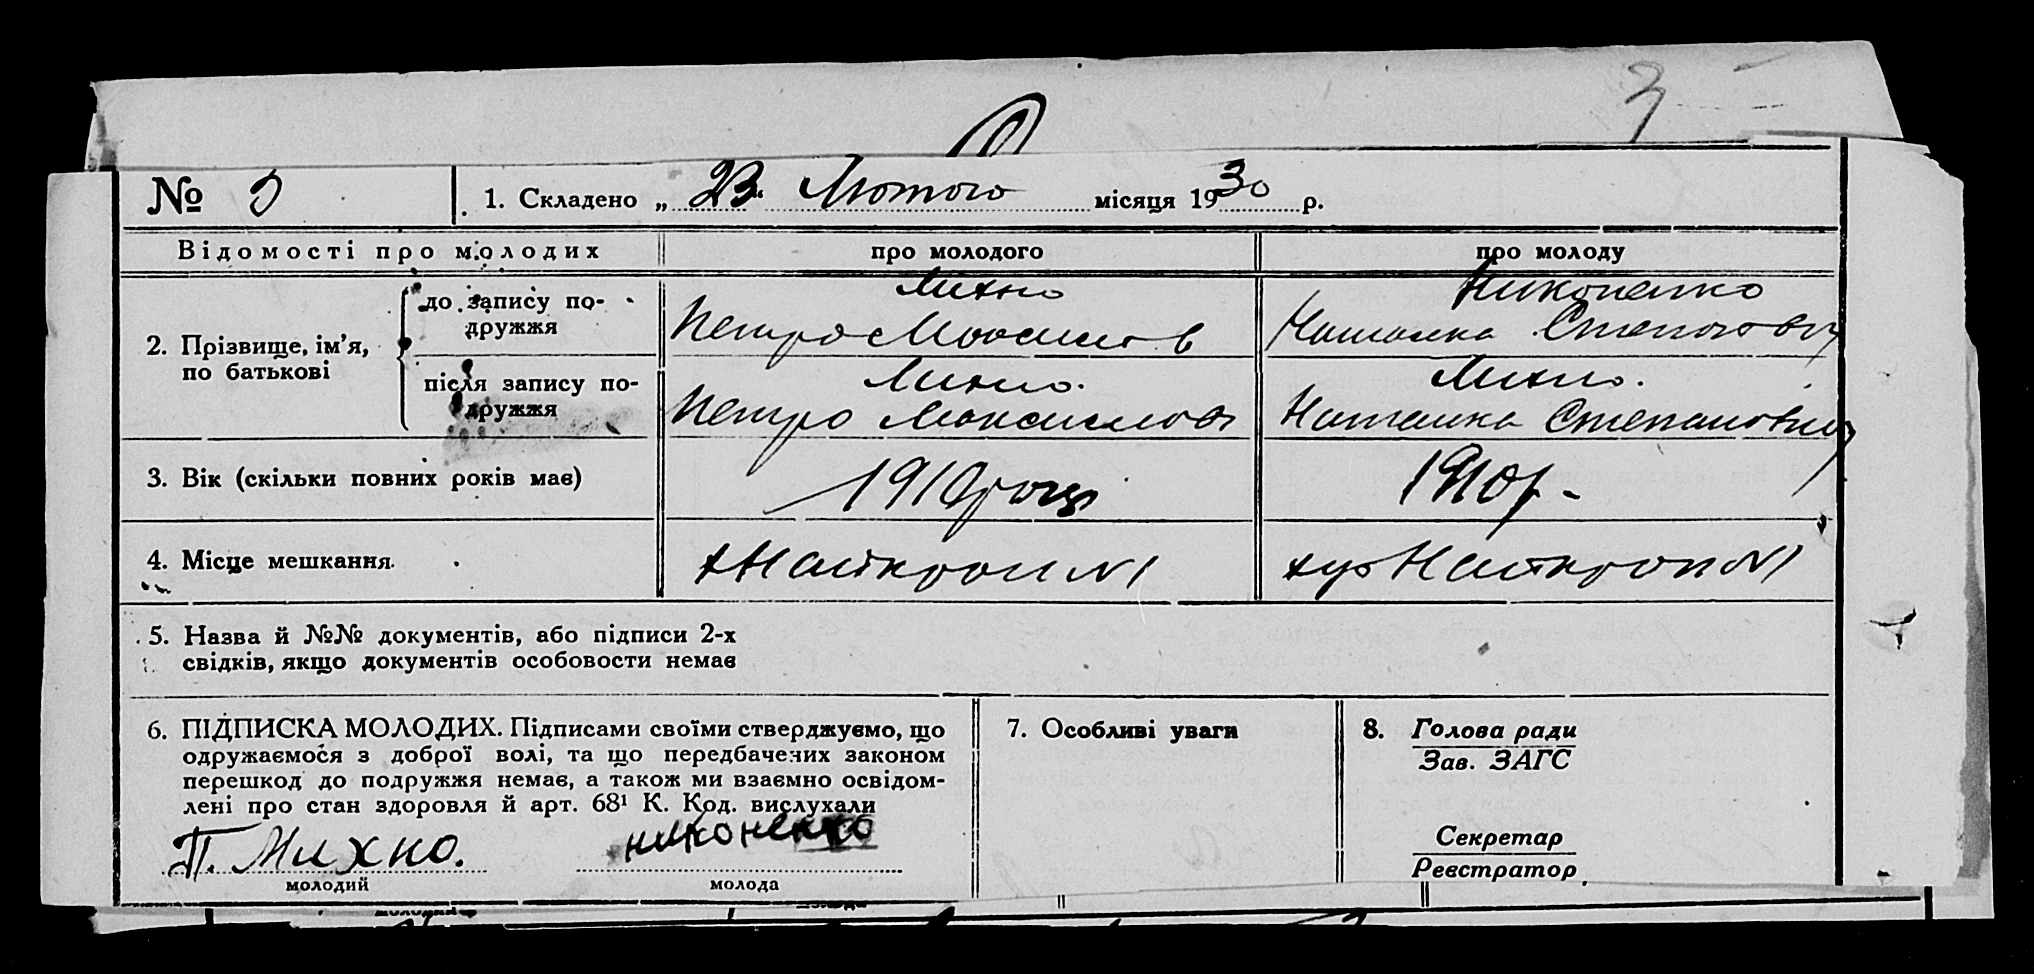 3
№ 3 1. Складено „ 23 “ Лютого місяця 1930 р.
Відомості про молодих про молодого про молоду
2. Прізвище, ім’я, по батькові
до запису подружжя
Михно
Петро
Никоненко
Наталка Степановна
після запису подружжя
Михно.
Петро Максимов
Михно.
Наталка Степановна
3. Вік (скільки повних років має) 1910 році 1910 р. -
4. Місце мешкання. х Найкроп N1 хут Найкроп N1
5. Назва й №№ документів, або підписи 2-х
свідків, якщо документів особовости немає
6. ПІДПИСКА МОЛОДИХ. Підписами своїми стверджуємо, що
одружаємося з доброї волі, та що передбачених законом
перешкод до подружжя немає, а також ми взаємно освідом-
лені про стан здоровля й арт. 68¹ К. Код. вислухали
П. Михно. никоненко
молодий молода
7. Особливі уваги
8. Голова ради
Зав. ЗАГС
Секретар
Реєстратор